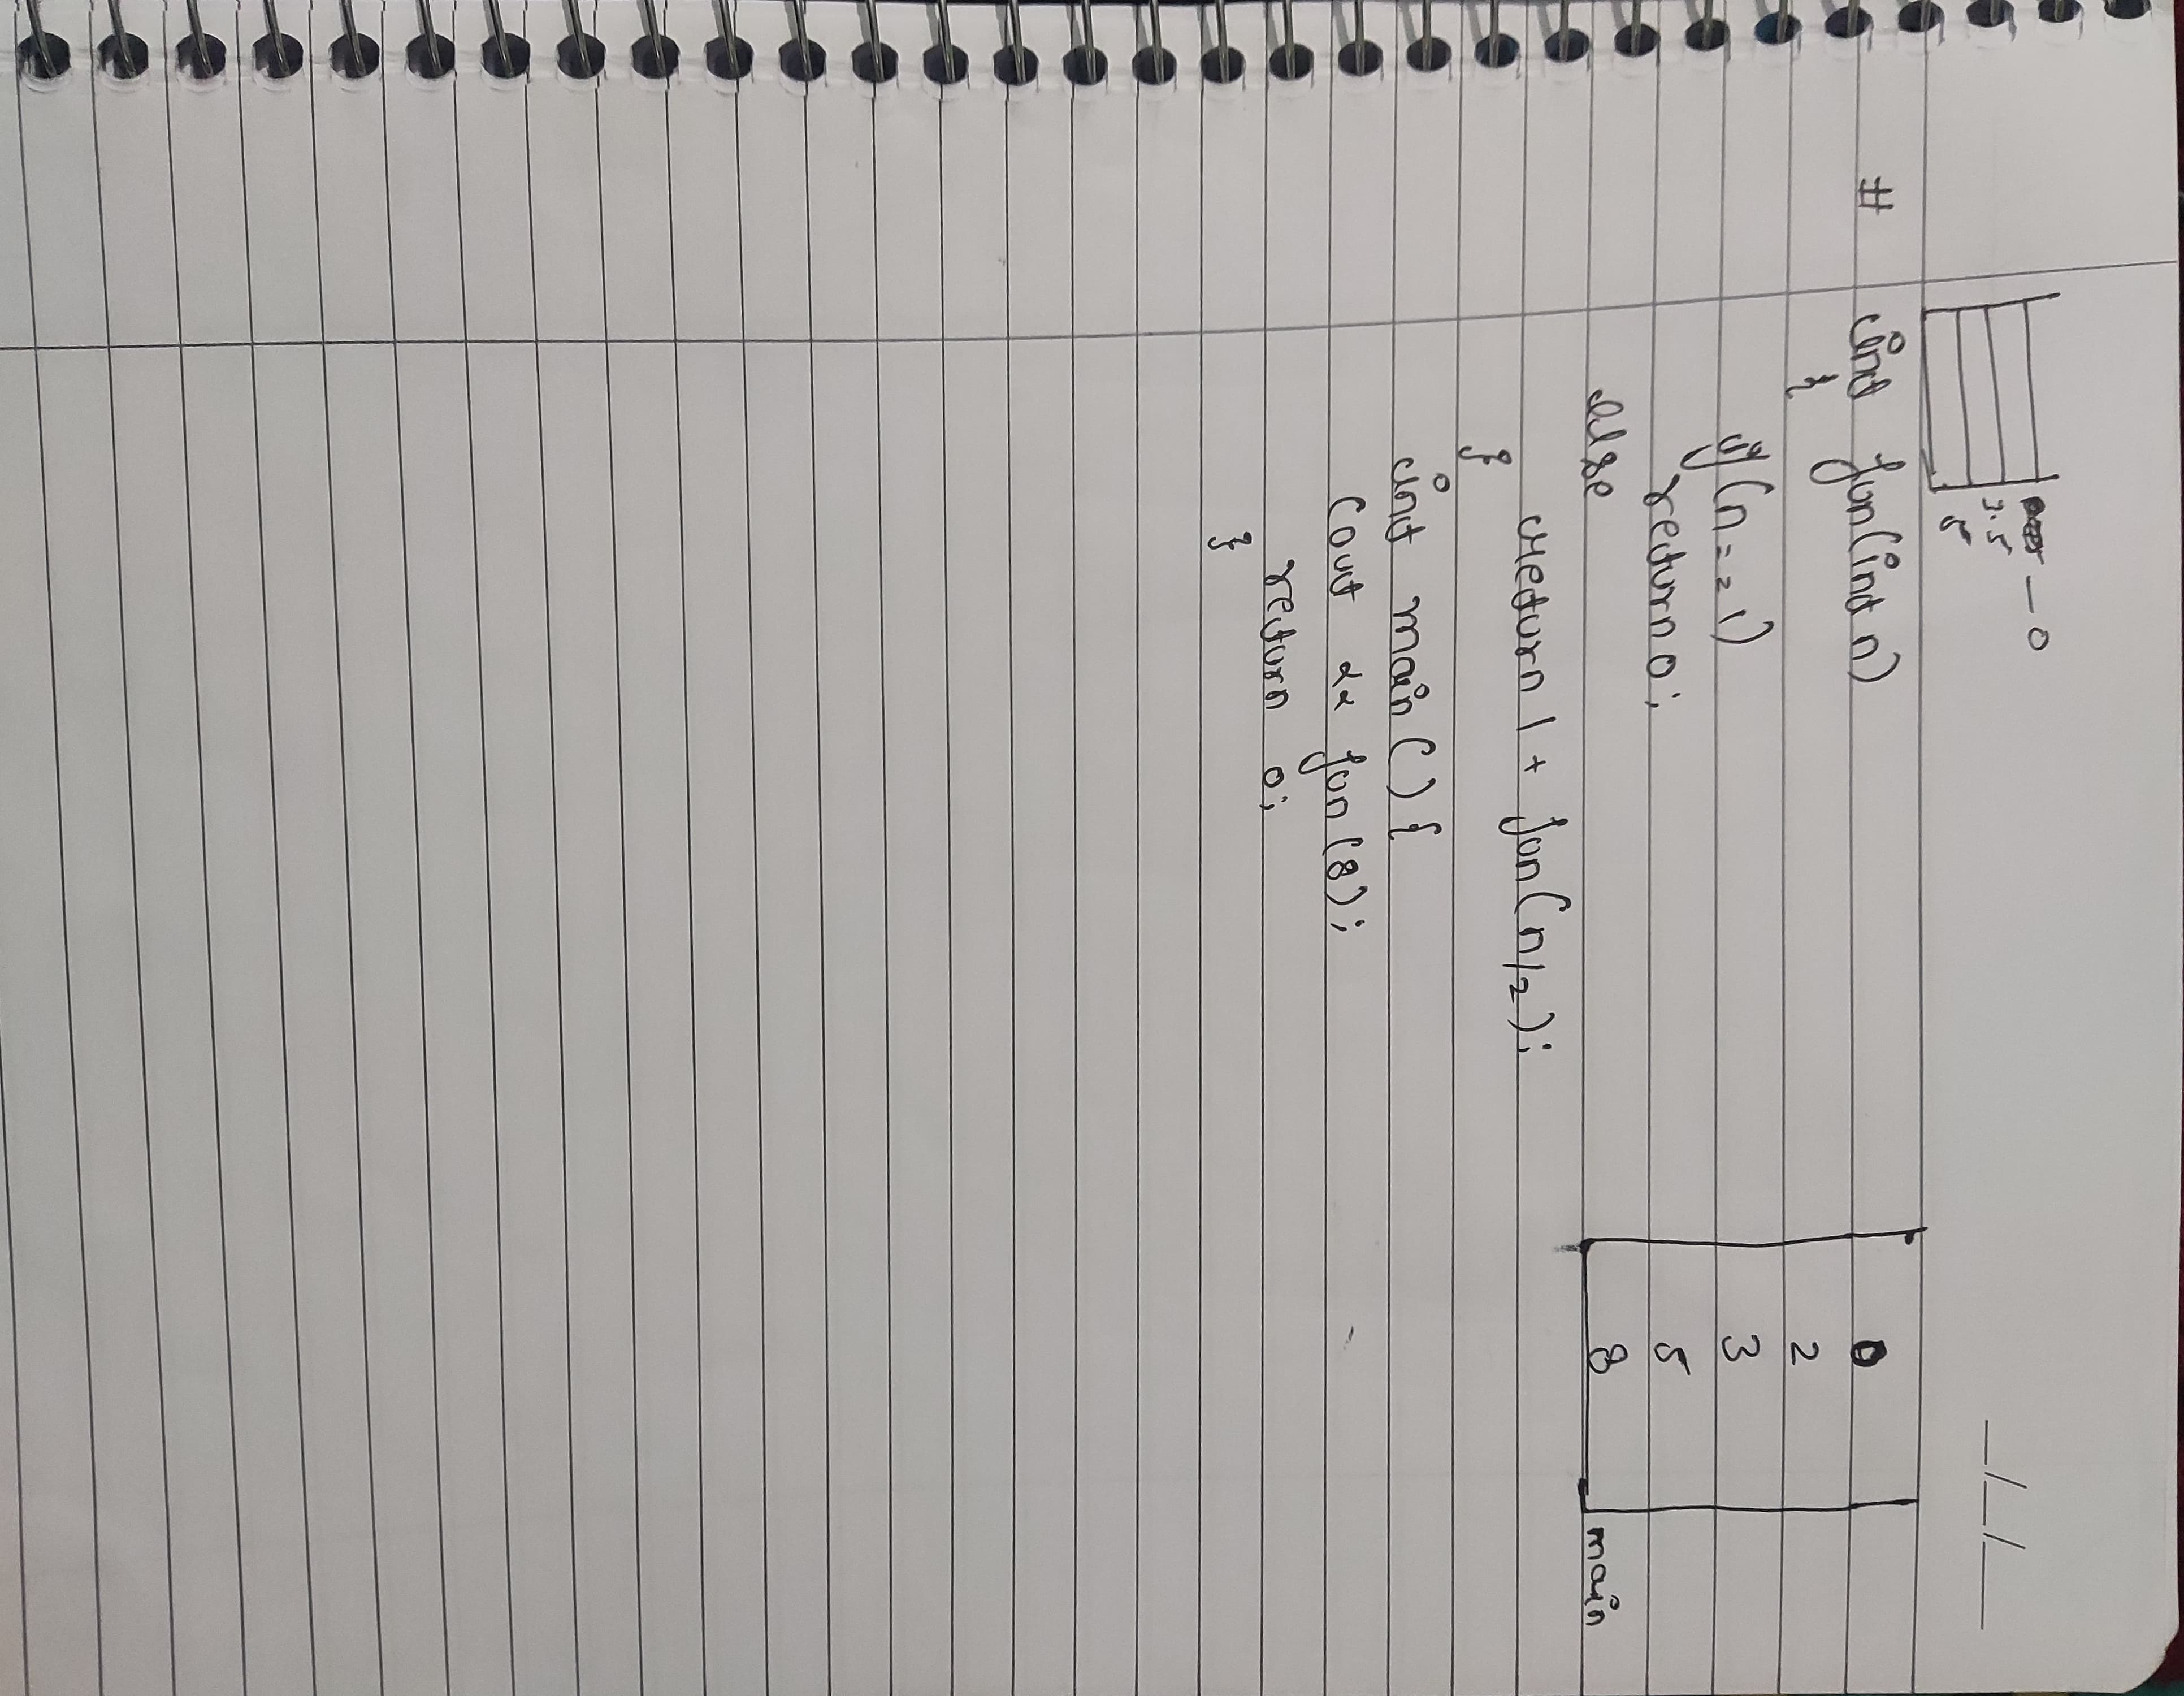 — 0
3.5
5
__/__/___
# int fun(int n)
{
if(n==1)
return 0;
else
return 1 + fun(n/2);
}
int main() {
cout << fun(8);
return 0;
}
0
2
3
5
8
main